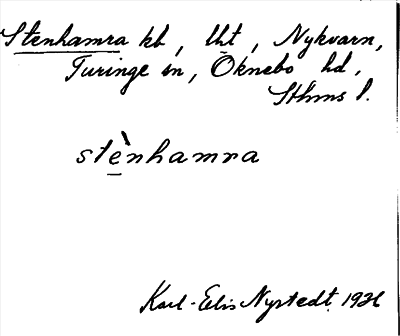 Stenhamra kb, lht, Nykvarn,
Turinge sn, Öknebo hd,
Sthms l.
stènhamra
Karl-Elis Nystedt 1936